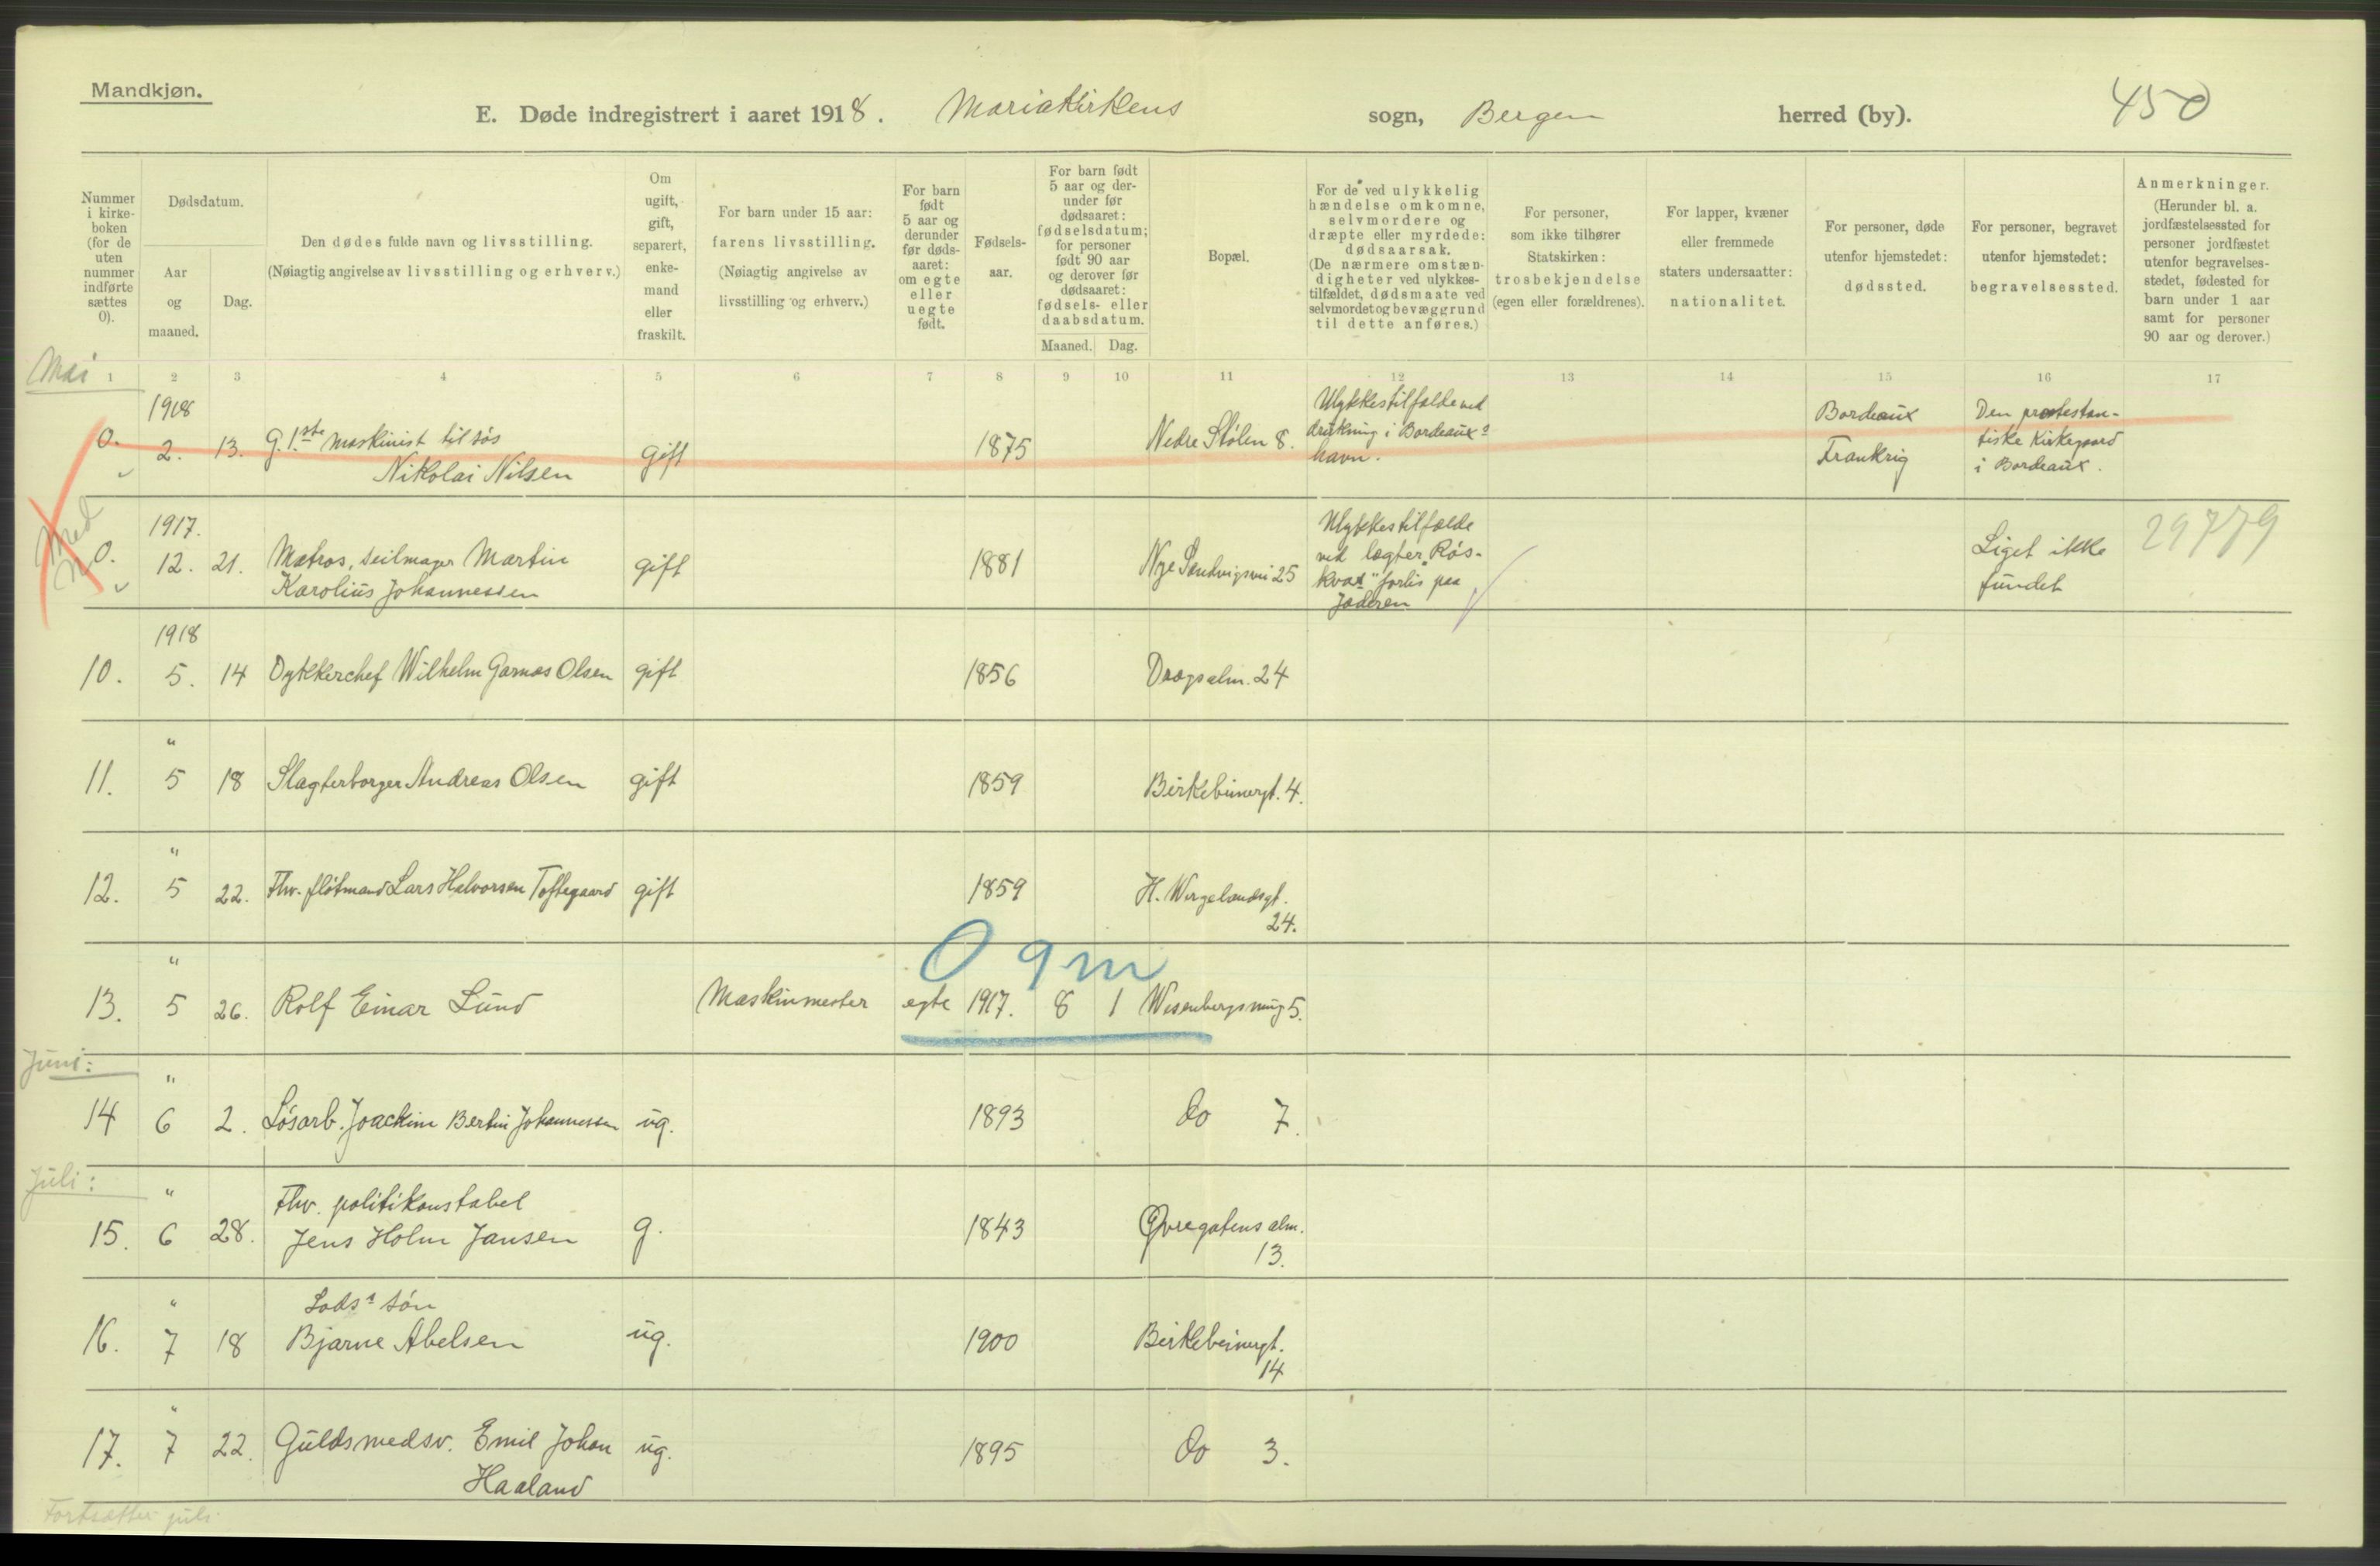 Mandkjøn.
E. Døde indregistrert i aaret 1918. Mariakirkens sogn, Bergen herred (by).
450
Nummer i kirkeboken (for de uten nummer indførte sættes 0).
Dødsdatum.
Aar og maaned.
Dag.
Den dødes fulde navn og livsstilling.
(Nøiagtig angivelse av livsstilling og erhverv.)
Om ugift, gift, separert, enkemand eller fraskilt.
For barn under 15 aar: farens livsstilling.
(Nøiagtig angivelse av livsstilling og erhverv.)
For barn født 5 aar og derunder før dødsaaret: om egte eller uegte født.
Fødselsaar.
For barn født 5 aar og derunder før dødsaaret: fødselsdatum; for personer født 90 aar og derover før dødsaaret: fødsels- eller daabsdatum.
Maaned. Dag.
Bopæl.
For de ved ulykkelig hændelse omkomne, selvmordere og dræpte eller myrdede: dødsaarsak.
(De nærmere omstændigheter ved ulykkestilfældet, dødsmaate ved selvmordet og bevæggrund til dette anføres.)
For personer, som ikke tilhører Statskirken: trosbekjendelse (egen eller forældrenes).
For lapper, kvæner eller fremmede staters undersaatter: nationalitet.
For personer, døde utenfor hjemstedet: dødssted.
For personer, begravet utenfor hjemstedet: begravelsessted.
Anmerkninger.
(Herunder bl. a. jordfæstelsessted for personer jordfæstet utenfor begravelsesstedet, fødested for barn under 1 aar samt for personer 90 aar og derover.)
Mai
1 2 3 4 5 6 7 8 9 10 11 12 13 14 15 16 17
1918
0. 2. 13. G. 1ste maskinist til søs
Nikolai Nilsen gift 1875 Nedre Stølen 8. Ulykkestilfælde ved
drukning i Bordeaux's
havn.
Bordeaux
Frankrig
Den protestan-
tiske Kirkegaard
i Bordeaux.
Med
1917.
0. 12. 21. Matros, seilmager Martin
Karolius Johannessen gift 1881 Nye Sandvigsvei 25
Ulykkestilfælde
ved lægter "Røs-
kvar" forlis paa
Jæderen
Liget ikke
fundet
29779
1918
10. 5. 14 Dykkerchef Wilhelm Garmas Olsen gift 1856 Dragsalm. 24
"
11. 5 18 Slagterborger Andreas Olsen gift 1859 Birkebeinergt. 4.
"
12. 5 22. Fhv. fløtmand Lars Halvorsen Toftegaard gift 1859 H. Wergelandsgt.
24.
0 9 m
"
13. 5 26. Rolf Einar Lund Maskinmester egte 1917. 8 1 Wesenbergsmug 5.
Juni:
"
14 6 2. Løsarb. Joackim Bertin Johannessen ug. 1893 do 7.
Juli:
"
15. 6 28. Fhv. politikonstabel
Jens Holm Jansen g. 1843 Øvregatens alm.
13.
"
16. 7 18 Lods's søn
Bjarne Abelsen ug. 1900 Birkebeinergt.
14
"
17. 7 22. Guldsmedsv. Emil Johan
Haaland ug. 1895 do 3.
Fortsætter juli